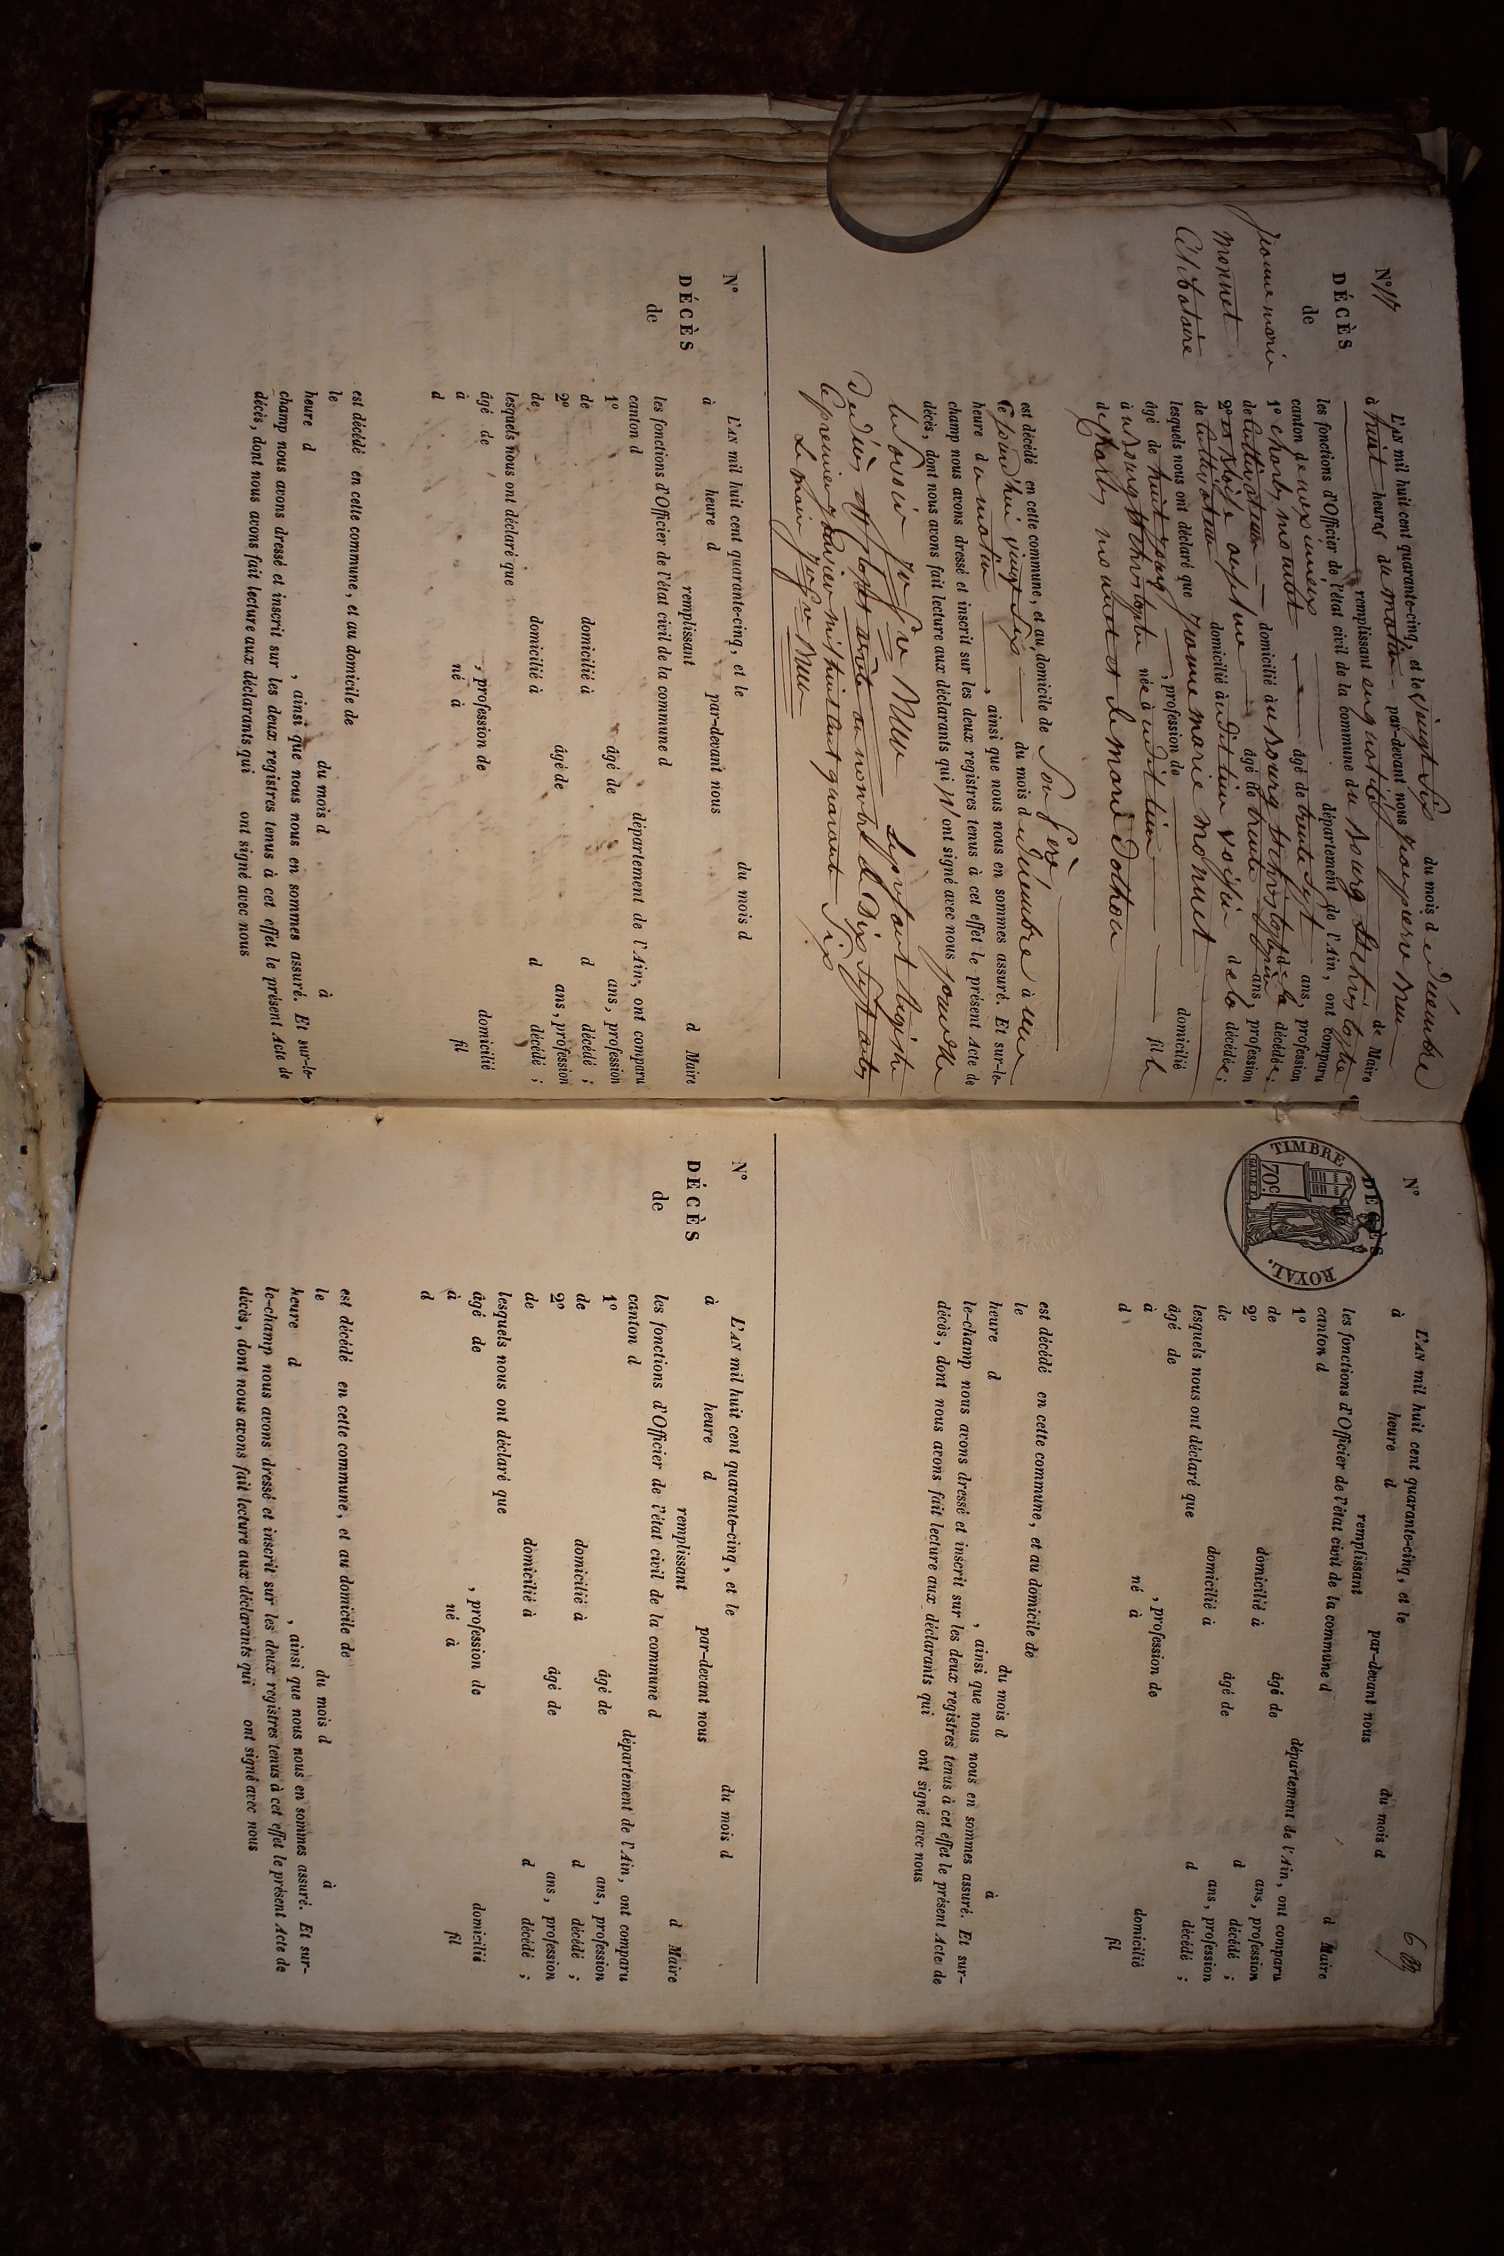 N° 17
DÉCÈS
de
jeanne marie
Monnet
Célibataire
L'AN mil huit cent quarante-cinq, et le vingt six du mois de décembre
à huit heures du matin par-devant nous
remplissant de Maire
les fonctions d'Officier de l'état civil de la commune du Bourg St christophe
canton de meximieux département de l'Ain, ont comparu
1° charles monnet âgé de trente sept ans, profession
de cultivateur domicilié à u Bourg St christophe de la décédée;
2° âgé de trente ans, profession
de cultivateur domicilié à udit lieu voisin de la décédée;
lesquels nous ont déclaré que jeanne marie monnet
âgé de huit jours, profession de domicilié
à u Bourg St christophe née à udit lieu fille
de charles monnet et de marie
est décédé en cette commune, et au domicile de Son père
le jourd'hui vingt six du mois de décembre à une
heure du matin, ainsi que nous nous en sommes assuré. Et sur-le-
champ nous avons dressé et inscrit sur les deux registres tenus à cet effet le présent Acte de
décès, dont nous avons fait lecture aux déclarants qui n'ont signé avec nous pour ne
le Savoir
le présent Registre
de décès au nombre de Dix Sept actes
le premier janvier mil huit cent quarante Six
Le maire
N°
DÉCÈS
de
L'AN mil huit cent quarante-cinq, et le du mois d
à heure d par-devant nous
remplissant d Maire
les fonctions d'Officier de l'état civil de la commune d
canton d département de l'Ain, ont comparu
1° âgé de ans, profession
de domicilié à d décédé ;
2° âgé de ans, profession
de domicilié à d décédé ;
lesquels nous ont déclaré que
âgé de , profession de domicilié
à né à fil
d
est décédé en cette commune, et au domicile de
le du mois d à
heure d , ainsi que nous nous en sommes assuré. Et sur-le-
champ nous avons dressé et inscrit sur les deux registres tenus à cet effet le présent Acte de
décès, dont nous avons fait lecture aux déclarants qui ont signé avec nous
N°
DÉCÈS
de
TIMBRE ROYAL.
70c
L'AN mil huit cent quarante-cinq, et le du mois d
à heure d par-devant nous
remplissant d Maire
les fonctions d'Officier de l'état civil de la commune d
canton d département de l'Ain, ont comparu
1° âgé de ans, profession
de domicilié à d décédé ;
2° âgé de ans, profession
de domicilié à d décédé ;
lesquels nous ont déclaré que
âgé de , profession de domicilié
à né à fil
d
est décédé en cette commune, et au domicile de
le du mois d à
heure d , ainsi que nous nous en sommes assuré. Et sur-
le-champ nous avons dressé et inscrit sur les deux registres tenus à cet effet le présent Acte de
décès, dont nous avons fait lecture aux déclarants qui ont signé avec nous
N°
DÉCÈS
de
L'AN mil huit cent quarante-cinq, et le du mois d
à heure d par-devant nous
remplissant d Maire
les fonctions d'Officier de l'état civil de la commune d
canton d département de l'Ain, ont comparu
1° âgé de ans, profession
de domicilié à d décédé ;
2° âgé de ans, profession
de domicilié à d décédé ;
lesquels nous ont déclaré que
âgé de , profession de domicilié
à né à fil
d
est décédé en cette commune, et au domicile de
le du mois d à
heure d , ainsi que nous nous en sommes assuré. Et sur-
le-champ nous avons dressé et inscrit sur les deux registres tenus à cet effet le présent Acte de
décès, dont nous avons fait lecture aux déclarants qui ont signé avec nous